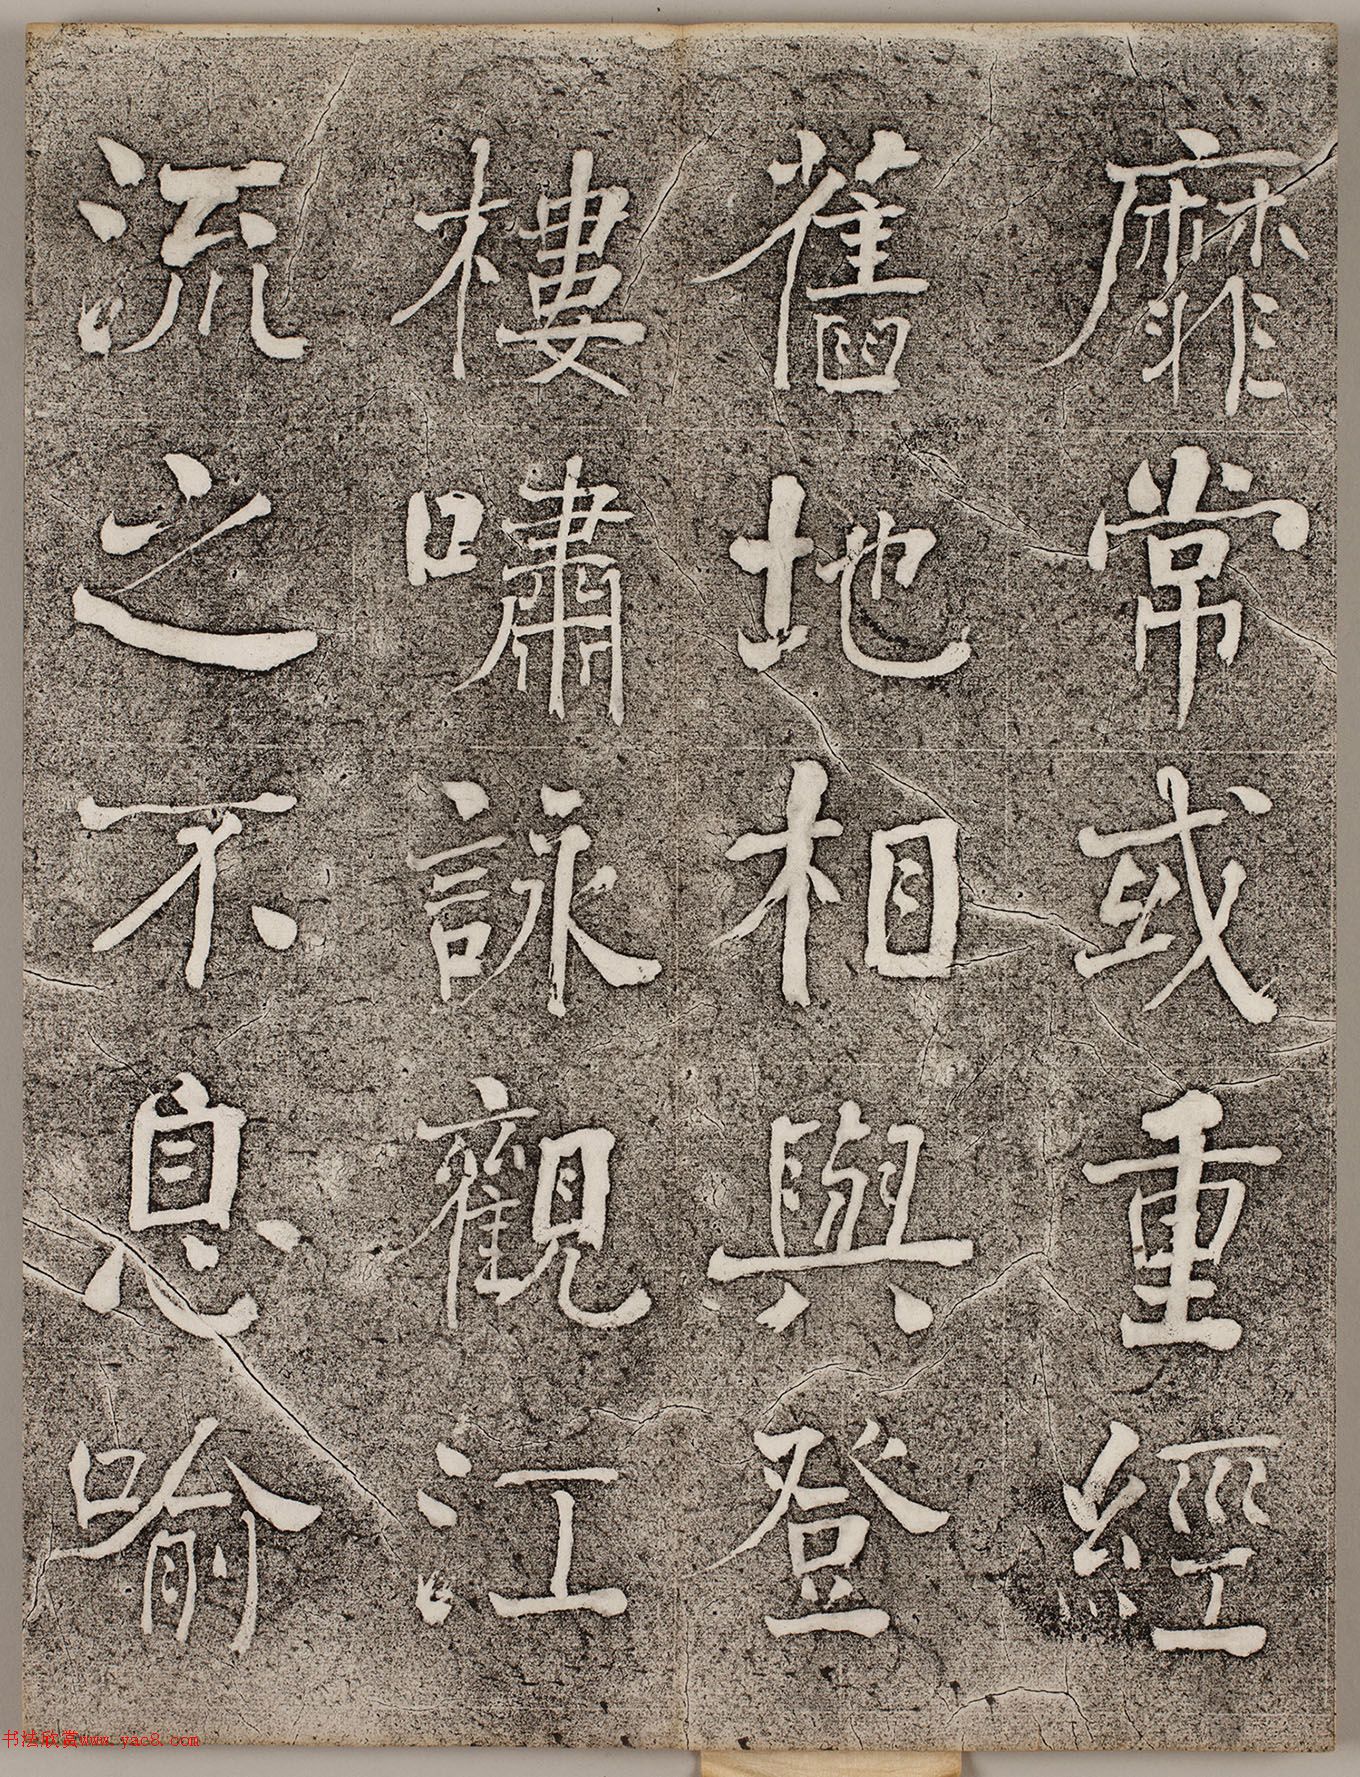 靡常或重經
舊地相與登
樓嘯詠觀江
流之不息喻
书法欣赏www.yac8.com